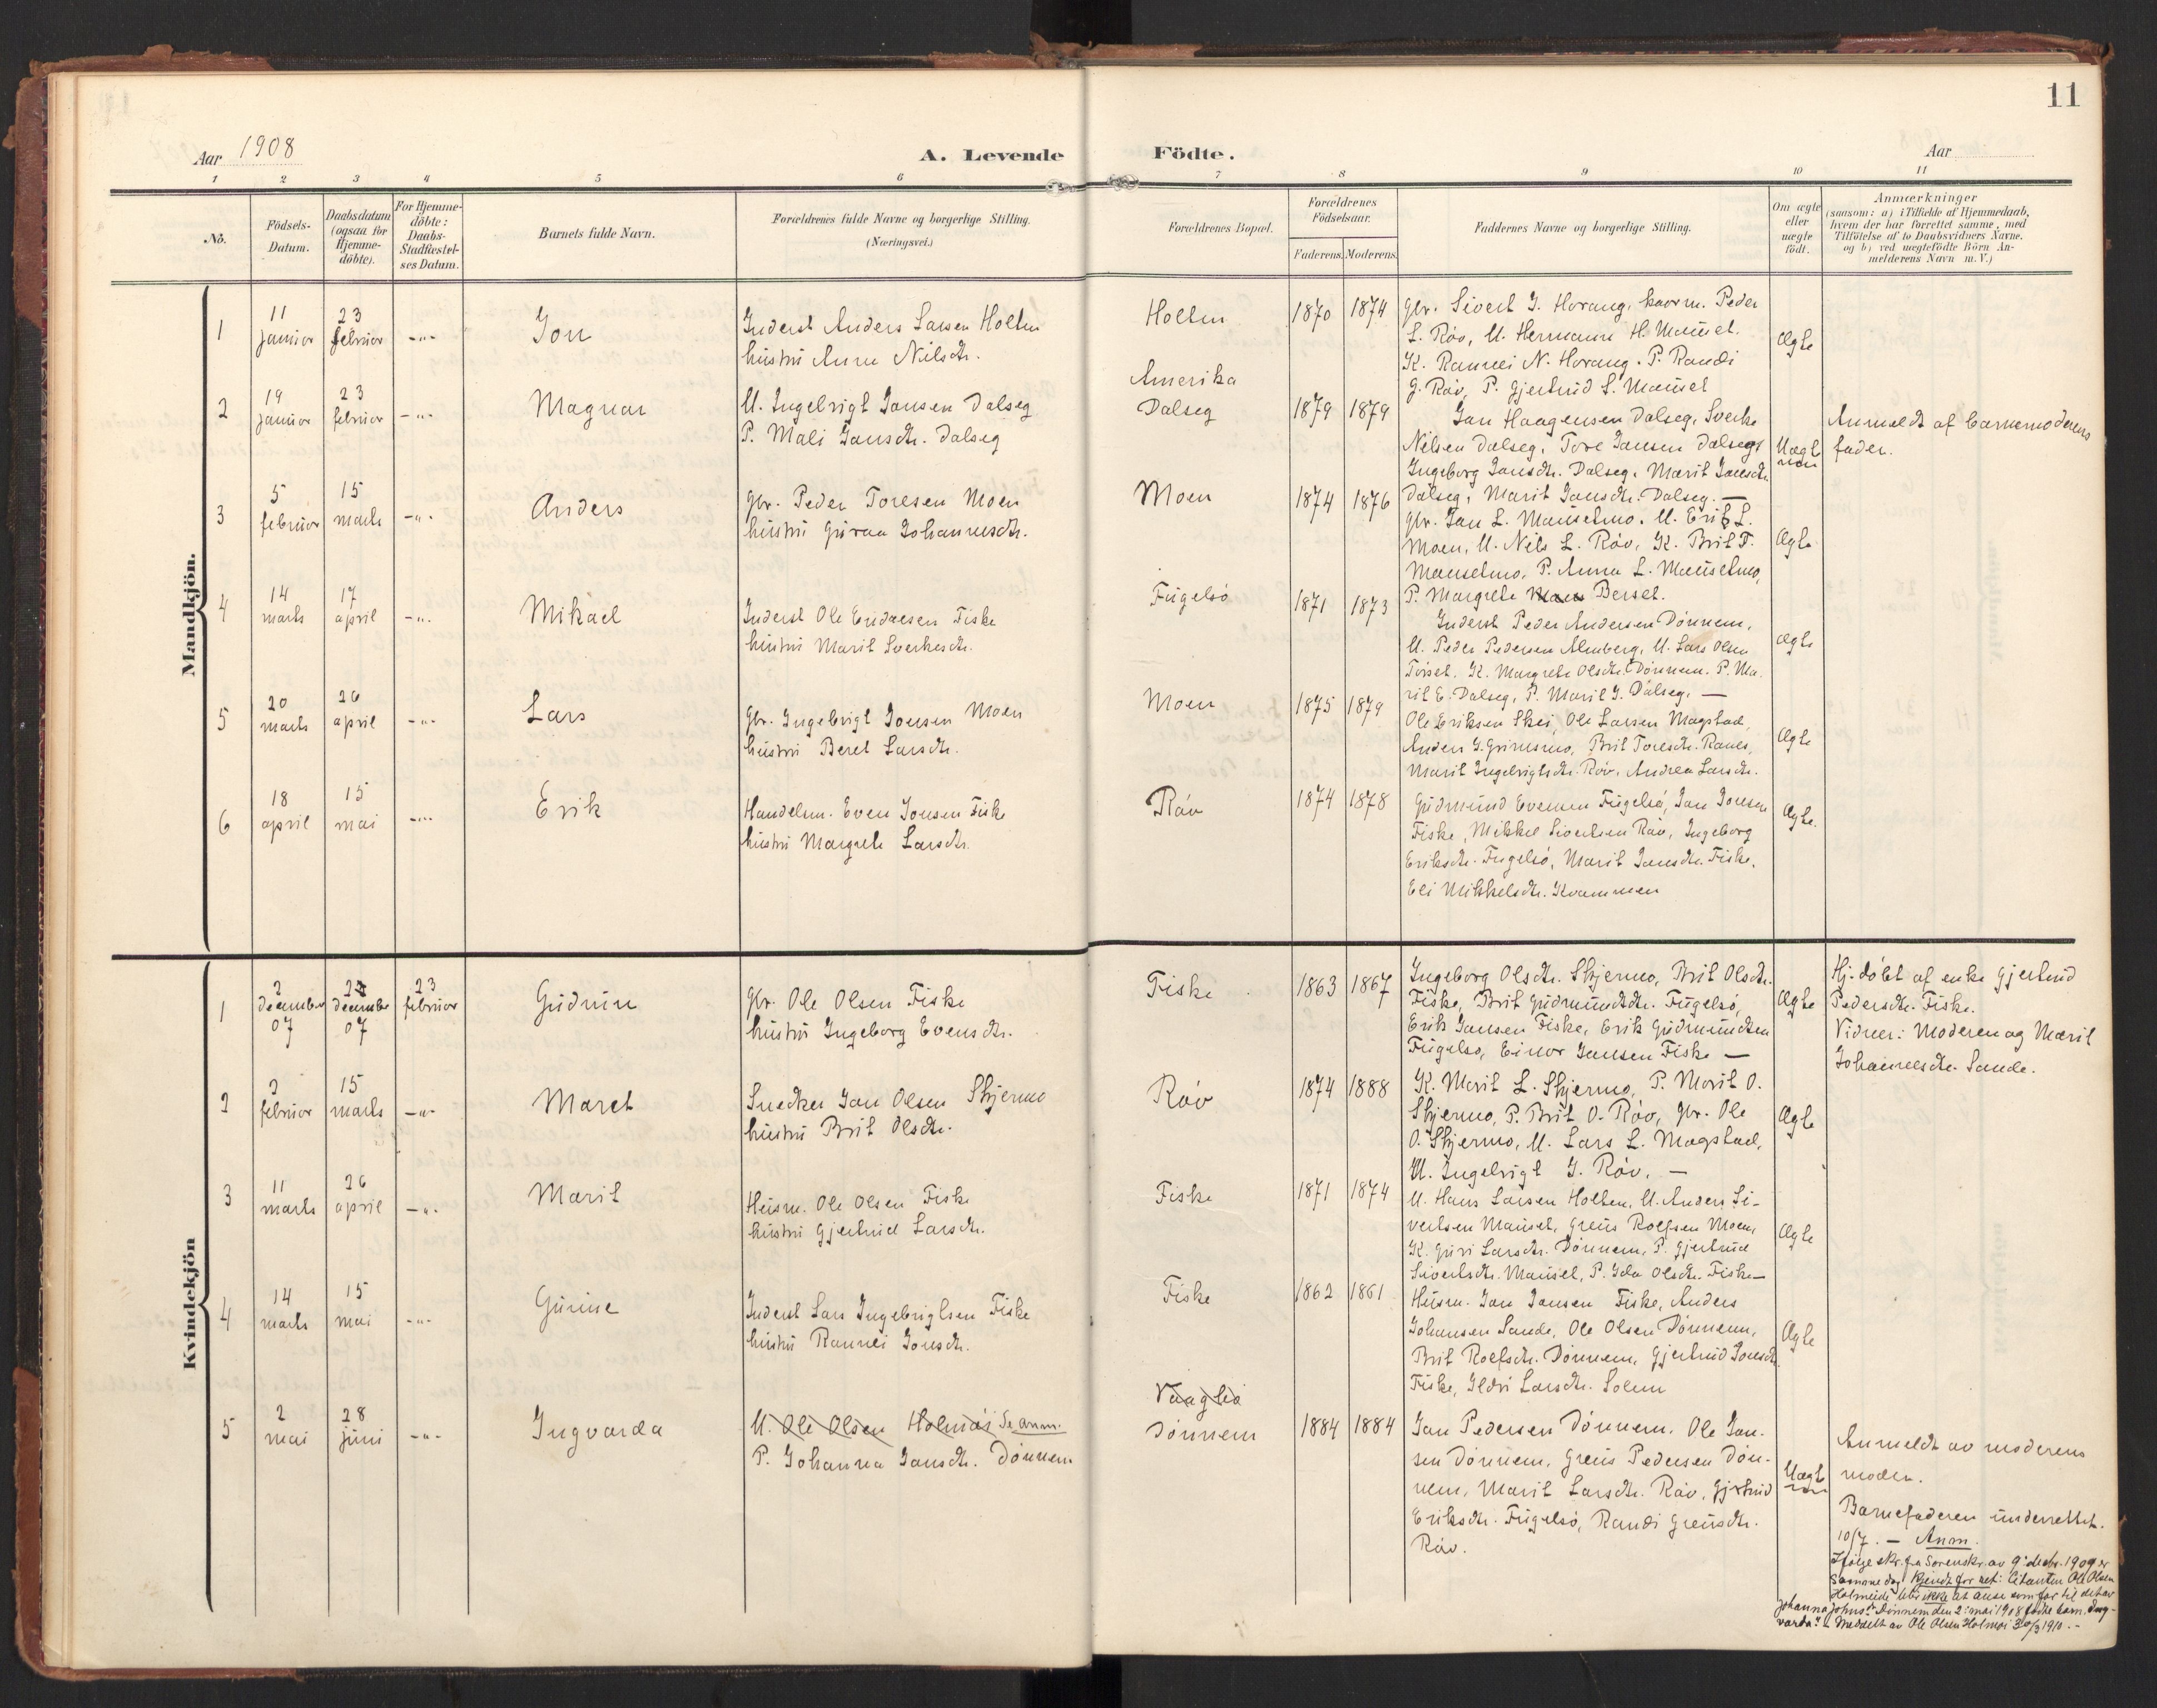 11
Aar 1908
A. Levende Födte.
Aar
1 2 3 4 5 6 7 8 9 10 11
No.
Födsels-
Datum.
Daabsdatum
(ogsaa for
Hjemme-
döbte).
For Hjemme-
döbte:
Daabs-
Stadfæstel-
ses Datum.
Barnets fulde Navn.
Forældrenes fulde Navne og borgerlige Stilling.
(Næringsvei.)
Forældrenes Bopæl.
Forældrenes
Födselsaar.
Faderens. Moderens.
Faddernes Navne og borgerlige Stilling.
Om ægte
eller
uægte
födt.
Anmærkninger
(saasom: a) i Tilfælde af Hjemmedaab,
hvem der har forrettet samme, med
Tilföielse af to Daabsvidners Navne.
og b) ved uægtefödte Börn An-
melderens Navn m.V.)
Mandkjön.
1
11
januar
23
februar
-"-
Jon
Inderst Anders Larsen Holten
hustru Anne Nilsdtr.
Holten
1870 1874
Gbr. Sivert J. Horang, kaarm. Peder
L. Röv, U. Hermann H. Mauset.
K. Rannei N. Horang. P. Randi
G. Röv, P. Gjertrud S. Mauset
Ægte
2
19
januar
23
februar
-"-
Magnar
U. Ingebrigt Jonsen Dalseg
P. Mali Jansdtr. Dalseg
Amerika
Dalseg
1879 1879
Jan Haagensen Dalseg, Sverke
Nilsen Dalseg, Tore Jansen Dalseg,
Ingeborg Jansdtr. Dalseg, Marit Jansdtr.
Dalseg, Marit Jansdtr. Dalseg. —
Uægte
Anmeldt af barnemoderens
fader.
3
5
februar
15
marts
-"-
Anders
Gbr. Peder Toresen Moen
hustru Guraa Johannesdtr.
Moen
1874 1876
Gbr. Jan L. Mauselmo. U. Erik L.
Moen, U. Nils L. Röv, K. Brit T.
Mauselmo, P. Anna L. Mauselmo,
P. Margrete Berset.
Ægte
4
14
marts
17
april
-"-
Mikael
Inderst Ole Endresen Fiske
hustru Marit Sverkesdtr.
Fugelsö
1871 1873
Inderst Peder Andersen Dönnem,
U. Peder Pedersen Almberg, U. Lars Olsen
Töset. K. Margrete Olsdtr. Dönnem. P. Ma-
rit E. Dalseg, P. Marit J. Dalseg. —
Ægte
5
20
marts
26
april
-"-
Lars
Gbr. Ingebrigt Jonsen Moen
hustru Beret Larsdtr.
Moen
1875 1879
Ole Eriksen Skei, Ole Larsen Magstad,
Anders J. Grimsmo, Brit Toresdtr. Ranes,
Marit Ingebrigtsdtr. Röv, Andrea Larsdtr.
Ægte
6
18
april
15
mai
-"-
Erik
Handelsm. Even Jonsen Fiske
hustru Margrete Larsdtr.
Röv
1874 1878
Gudmund Evensen Fugelsö, Jan Jonsen
Fiske, Mikkel Sivertsen Röv, Ingeborg
Eriksdtr. Fugelsö, Marit Jansdtr. Fiske.
Eli Mikkelsdtr. Kvammen
Ægte.
Kvindekjön
1
2
december
07
december
07
23
februar
Gudrun
Gbr. Ole Olsen Fiske
hustru Ingeborg Evensdtr.
Fiske
1863 1867
Ingeborg Olsdtr. Skjermo, Brit Olsdtr.
Fiske, Brit Gudmundsdtr. Fugelsö,
Erik Jansen Fiske, Erik Gudmundsen
Fugelsö, Einar Jansen Fiske —
Ægte
Hj. döbt af enke Gjertrud
Pedersdtr. Fiske.
Vidner: Moderen og Marit
Johannesdtr. Sande.
2
2
februar
15
marts
-"-
Maret
Snedker Jan Olsen Skjermo
hustru Brit Olsdtr.
Röv
1874 1888
K. Marit L. Skjermo, P. Marit O.
Skjermo, P. Brit O. Röv, Gbr. Ole
O. Skjermo, U. Lars L. Magstad,
U. Ingebrigt J. Röv. —
Ægte
3
11
marts
26
april
-"-
Marit
Husm. Ole Olsen Fiske
hustru Gjertrud Larsdtr.
Fiske
1871 1874
U. Hans Larsen Holten, U. Anders Si-
vertsen Mauset, Greus Roefsen Moen,
K. Guri Larsdtr. Dönnem, P. Gjertrud
Sivertsdtr. Mauset, P. Ida Olsdtr. Fiske —
Ægte
4
14
marts
15
mai
-"-
Gurine
Inderst Lars Ingebrigtsen Fiske
hustru Rannei Jonsdtr.
Fiske
1862 1861
Husm. Jan Jansen Fiske, Anders
Johansen Sande, Ole Olsen Dönnem,
Brit Roefsdtr. Dönnem, Gjertrud Jonsdtr.
Fiske, Ildri Larsdtr. Solem
Ægte
5
2
mai
28
juni
-"-
Ingvarda
U. Ole Olsen Holmöi Se anm.
P. Johanna Jansdtr. Dönnem
Vaagbö
Dönnem
1884 1884
Jan Pedersen Dönnem. Ole Jan-
sen Dönnem, Greus Pedersen Dön-
nem, Marit Larsdtr. Röv, Gjertrud
Eriksdtr. Fugelsö, Randi Greusdtr.
Röv.
Uægte
Anmeldt av moderens
moder.
Barnefaderen underrettet.
10/7. — Anm.
Ifölge skr. fra Sorenskr. av 9' decbr. 1909 er
samme dag kjendt for ret: Citanten Ole Olsen
Holmöide blir ikke at anse som far til det av
Johanna Johnsdtr. Dönnem den 2' mai 1908 födte barn, Ing-
varda". Meddelt av Ole Olsen Holmöi 30/3 1910. -